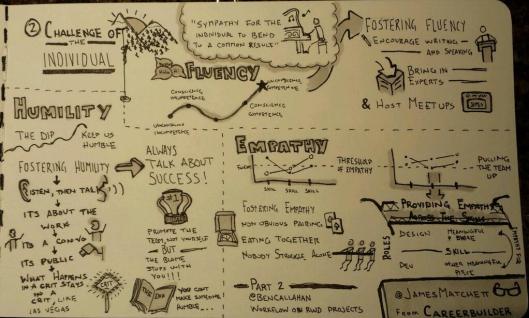 ② CHALLENGE OF
THE
INDIVIDUAL
"SYMPATHY FOR THE
INDIVIDUAL TO BEND
TO A COMMON RESULT"
FOSTERING FLUENCY
ENCOURAGE WRITING
AND SPEAKING
BRING IN
EXPERTS
& HOST MEETUPS
FLUENCY
CONSCIOUS
INCOMPETENCE
UNCONSCIOUS
INCOMPETENCE
CONSCIENCE
COMPETENCY
COMPETENCE
HUMILITY
THE DIP
KEEP US
HUMBLE
FOSTERING HUMILITY
LISTEN, THEN TALK
ITS ABOUT THE
WORK
ITS A CONVO
ITS PUBLIC
WHAT HAPPENS
IN A CRIT STAYS
IN A
CRIT, LIKE
LAS VEGAS
CRIT
ALWAYS
TALK ABOUT
SUCCESS!
#1
PROMOTE THE
TEAM, NOT YOURSELF
BUT
THE BLAME
STOPS WITH
YOU!!!
THE END
YOU CAN'T
MAKE SOMEONE
HUMBLE...
EMPATHY
SKILL SKILL SKILL
THRESHOLD
OF EMPATHY
PULLING
THE TEAM
UP
FOSTERING EMPATHY
NON OBVIOUS PAIRING
EATING TOGETHER
NOBODY STRUGGLE ALONE
PROVIDING EMPATHY
ACROSS THE SKILLS
ROLES
DESIGN
MEANINGFUL
SKILL
DEV
OTHER MEANINGFUL
PART 2
@BENCALLAHAN
WORKFLOW ON RWD PROJECTS
@JAMESMATCHETT
FROM CAREERBUILDER